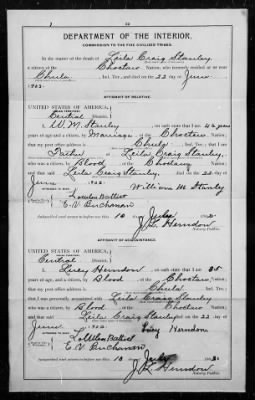 DEPARTMENT OF THE INTERIOR.
COMMISSION TO THE FIVE CIVILIZED TRIBES.
In the matter of the death of Leila Craig Stanley
a citizen of the Choctaw Nation, who formerly resided at or near
Chula, Ind. Ter., and died on the 22 day of June
1902.
AFFIDAVIT OF RELATIVE.
UNITED STATES OF AMERICA,
Central District.
I, W. M. Stanley on oath state that I am 42
years of age and a citizen, by Marriage of the Choctaw
Nation; that my post office address is Chula, Ind. Ter.; that I am
Father of Leila Craig Stanley,
who was a citizen, by Blood of the Choctaw
Nation; and that Leila Craig Stanley died on the 22 day of
June 1902.
William M Stanley
E. V. Buchanan
Subscribed and sworn to before me this 10 day of July 1902.
J. G. Herndon
Notary Public.
AFFIDAVIT OF ACQUAINTANCE.
UNITED STATES OF AMERICA,
Central District.
I, Lucy Herndon on oath state that I am 35
years of age, and a citizen by Blood of the Choctaw Nation;
that my post office address is Chula Ind. Ter.;
that I was personally acquainted with Leila Craig Stanley
who was a citizen, by Blood of the Choctaw
Nation; and that Leila Craig Stanley died on the 22 day of
June 1902.
Lucy Herndon
E V Buchanan
Subscribed and sworn to before me this 10 day of July 1902.
J. G. Herndon
Notary Public.